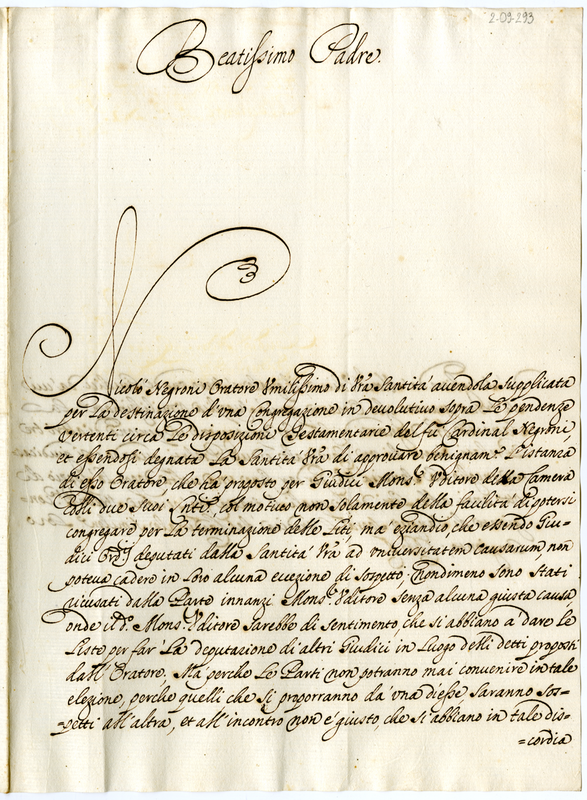 2-09-293
Beatissimo Padre.
Nicolò Negroni Oratore Vmilissimo di Vrã Santità auendola supplicata
per La destinazione d'vna Congregazione in deuolutiuo sopra Le pendenze
vertenti circa Le disposizioni Testamentarie del fù Cardinal Negroni,
et essendosi degnata La Santità Vrã di approuare benignam.e L'istanza
di esso Oratore, che hà proposto per Giudici Mons.r Vditore della Camera
colli due Suoi col motiuo non solamente della facilità di potersi
congregare per La terminazione delle Liti, mà eziandio, che essendo Giu-
dici Ord.rj deputati dalla Santità Vrã ad vniuersitatem causarum non
poteua cadere in Loro alcuna eccezione di sospetto; Nondimeno sono stati
ricusati dalla Parte innanzi Mons.r Vditore senza alcuna giusta causa
onde il d.o Mons.r Vditore sarebbe di sentimento, che si abbiano a dare Le
Liste per far La deputazione di altri Giudici in Luogo delli detti proposti
dall'Oratore. Mà perche Le Parti non potranno mai conuenire in tale
elezione, perche quelli che si proporranno da vna di esse saranno sos-
=petti all'altra, et all'incontro non è giusto, che si abbiano in tale dis-
=cordia